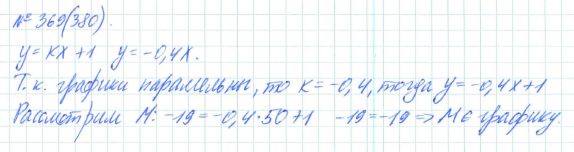 № 369(380).
y = kx + 1 y = -0,4x.
Т.к. графики параллельны, то k = -0,4, тогда y = -0,4x+1
Рассмотрим М: -19 = -0,4·50+1 -19 = -19 => М ∈ графику